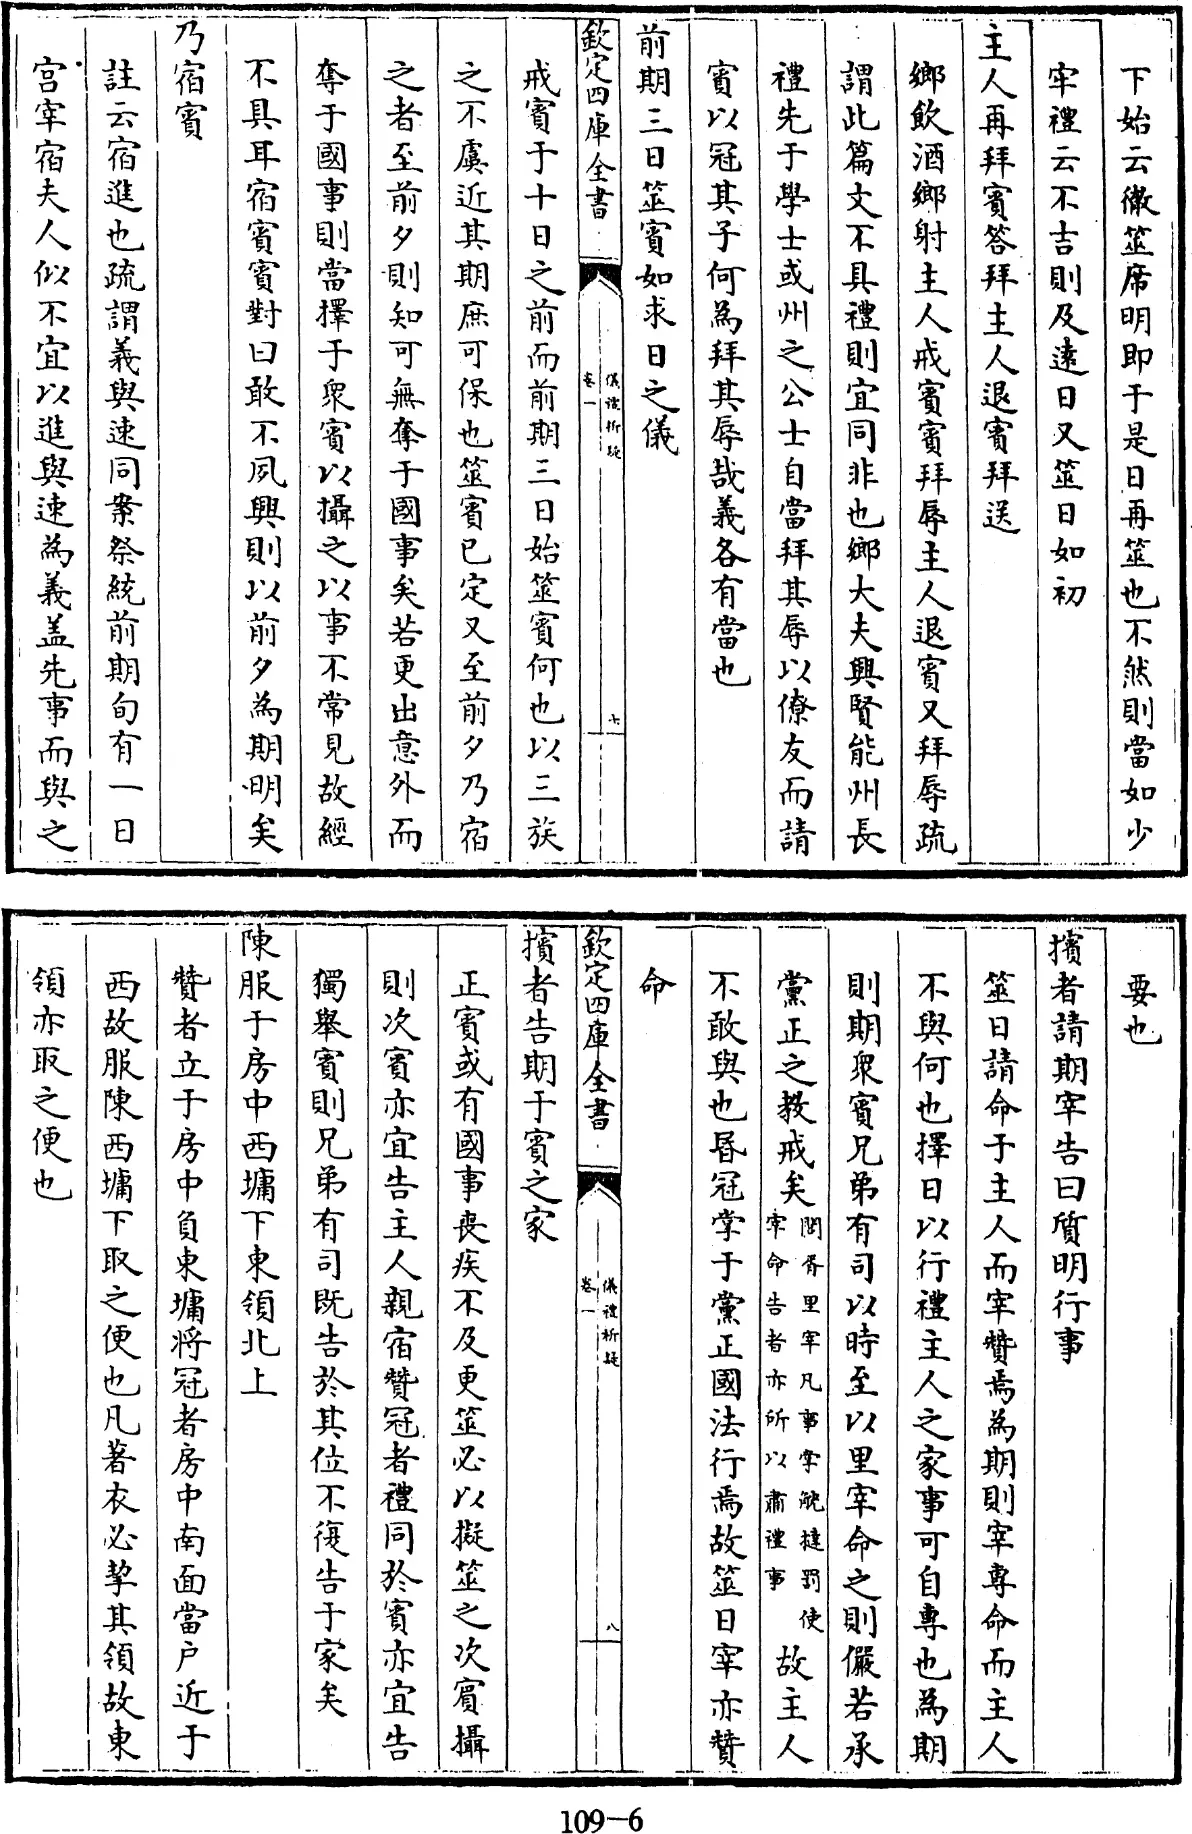 下始云徹筮席明即于是日再筮也不然則當如少
牢禮云不吉則及遠日又筮日如初
主人再拜賓答拜主人退賓拜送
鄉飲酒鄉射主人戒賓賓拜辱主人退賓又拜辱疏
謂此篇文不具禮則宜同非也鄉大夫興賢能州長
禮先于學士或州之公士自當拜其辱以僚友而請
賓以冠其子何為拜其辱哉義各有當也
前期三日筮賓如求日之儀
欽定四庫全書
儀禮析疑
卷一
七
戒賓于十日之前而前期三日始筮賓何也以三族
之不虞近其期庶可保也筮賓已定又至前夕乃宿
之者至前夕則知可無奪于國事矣若更出意外而
奪于國事則當擇于衆賓以攝之以事不常見故經
不具耳宿賓賓對曰敢不夙興則以前夕為期明矣
乃宿賓
註云宿進也疏謂義與速同案祭統前期旬有一日
宮宰宿夫人似不宜以進與速為義盖先事而與之
要也
擯者請期宰告曰質明行事
筮日請命于主人而宰贊焉為期則宰專命而主人
不與何也擇日以行禮主人之家事可自專也為期
則期衆賓兄弟有司以時至以里宰命之則儼若承
黨正之教戒矣閭胥里宰凡事掌觥撻罰使宰命告者亦所以肅禮事故主人
不敢與也昏冠掌于黨正國法行焉故筮日宰亦贊
命
欽定四庫全書
儀禮析疑
卷一
八
擯者告期于賓之家
正賓或有國事喪疾不及更筮必以擬筮之次賓攝
則次賓亦宜告主人親宿贊冠者禮同於賓亦宜告
獨舉賓則兄弟有司既告於其位不復告于家矣
陳服于房中西墉下東領北上
贊者立于房中負東墉將冠者房中南面當户近于
西故服陳西墉下取之便也凡著衣必挈其領故東
領亦取之便也
109-6